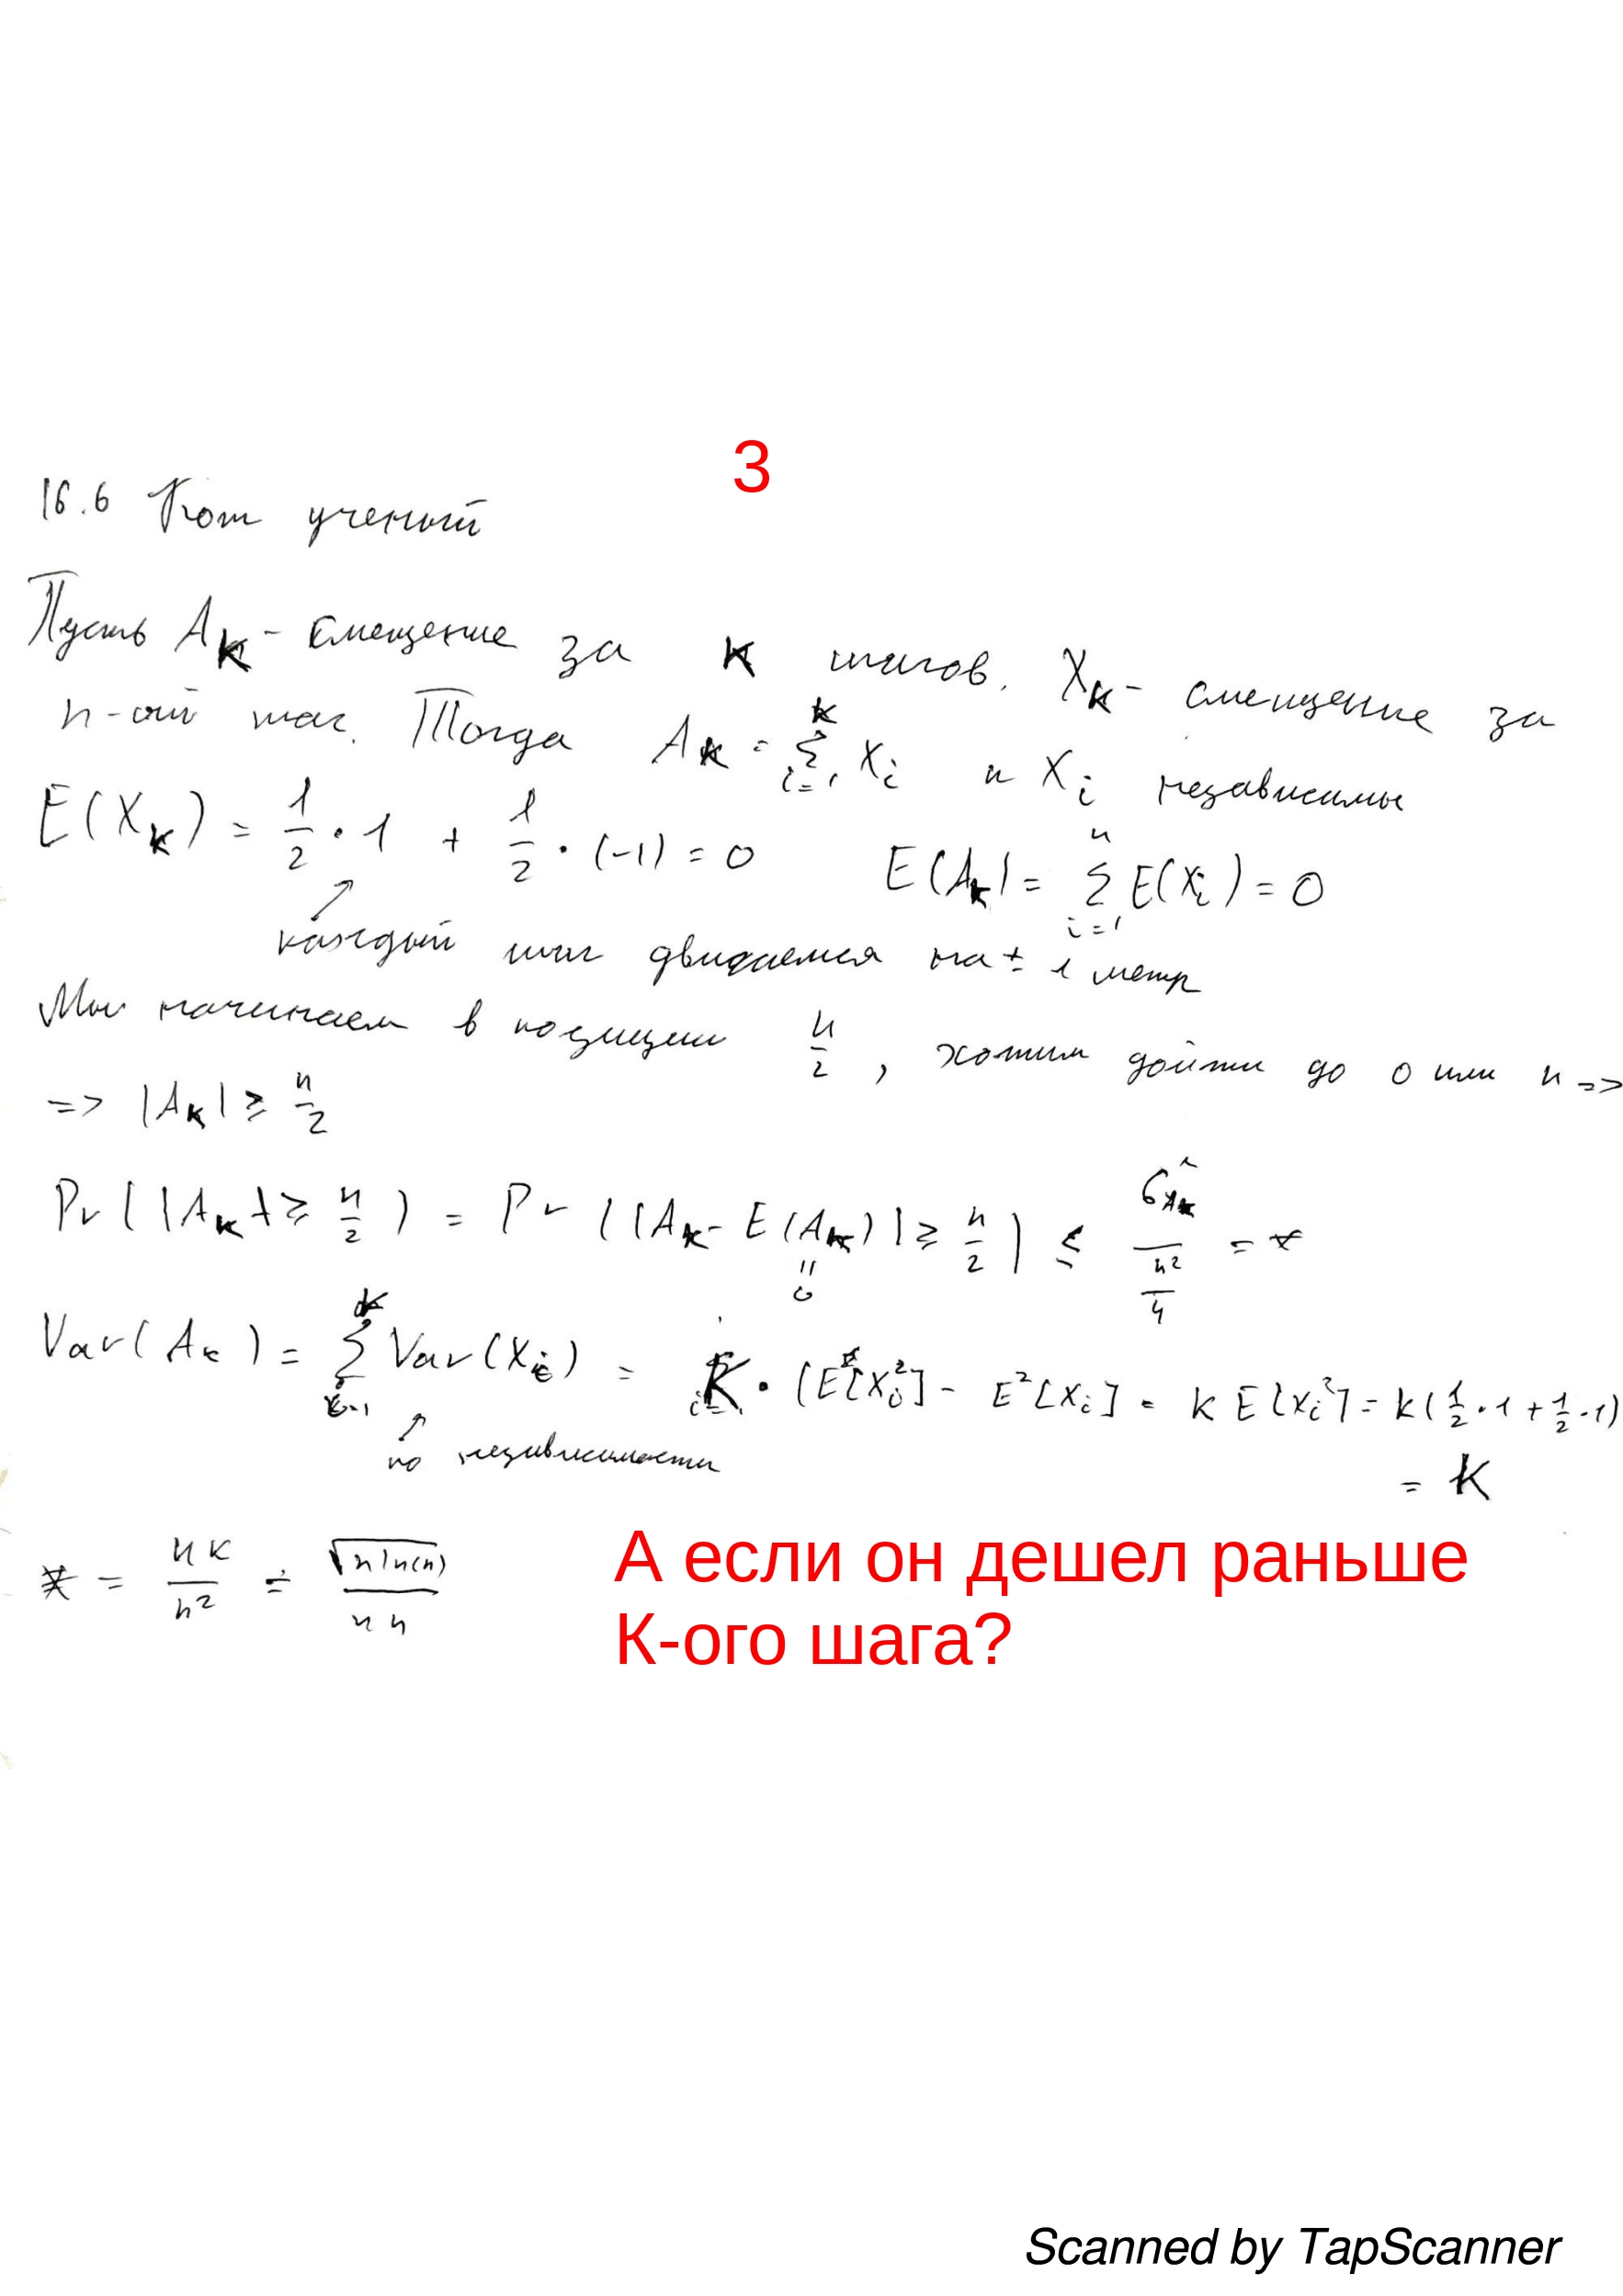 3
16.6 Кот ученый
Пусть A_K - смещение за K шагов. X_K - смещение за
n-ый шаг. Тогда A_K = \sum_{i=1}^{K} X_i и X_i независимы
E(X_K) = \frac{1}{2} \cdot 1 + \frac{1}{2} \cdot (-1) = 0 E(A_K) = \sum_{i=1}^{n} E(X_i) = 0
каждый шаг двигаемся на ± 1 метр
Мы начинаем в позиции \frac{n}{2}, хотим дойти до 0 или n =>
=> |A_K| ≥ \frac{n}{2}
Pr(|A_K| ≥ \frac{n}{2}) = Pr(|A_K - E(A_K)| ≥ \frac{n}{2}) ≤ \frac{σ^2_{A_K}}{\frac{n^2}{4}} = *
"
0
Var(A_K) = \sum_{i=1}^{K} Var(X_i) = K \cdot (E[X_i^2] - E^2[X_i] = K E[X_i^2] = K(\frac{1}{2} \cdot 1 + \frac{1}{2} \cdot 1)
по независимости
= K
* = \frac{4K}{n^2} = \frac{\sqrt{n ln(n)}}{n n}
А если он дешел раньше
К-ого шага?
Scanned by TapScanner